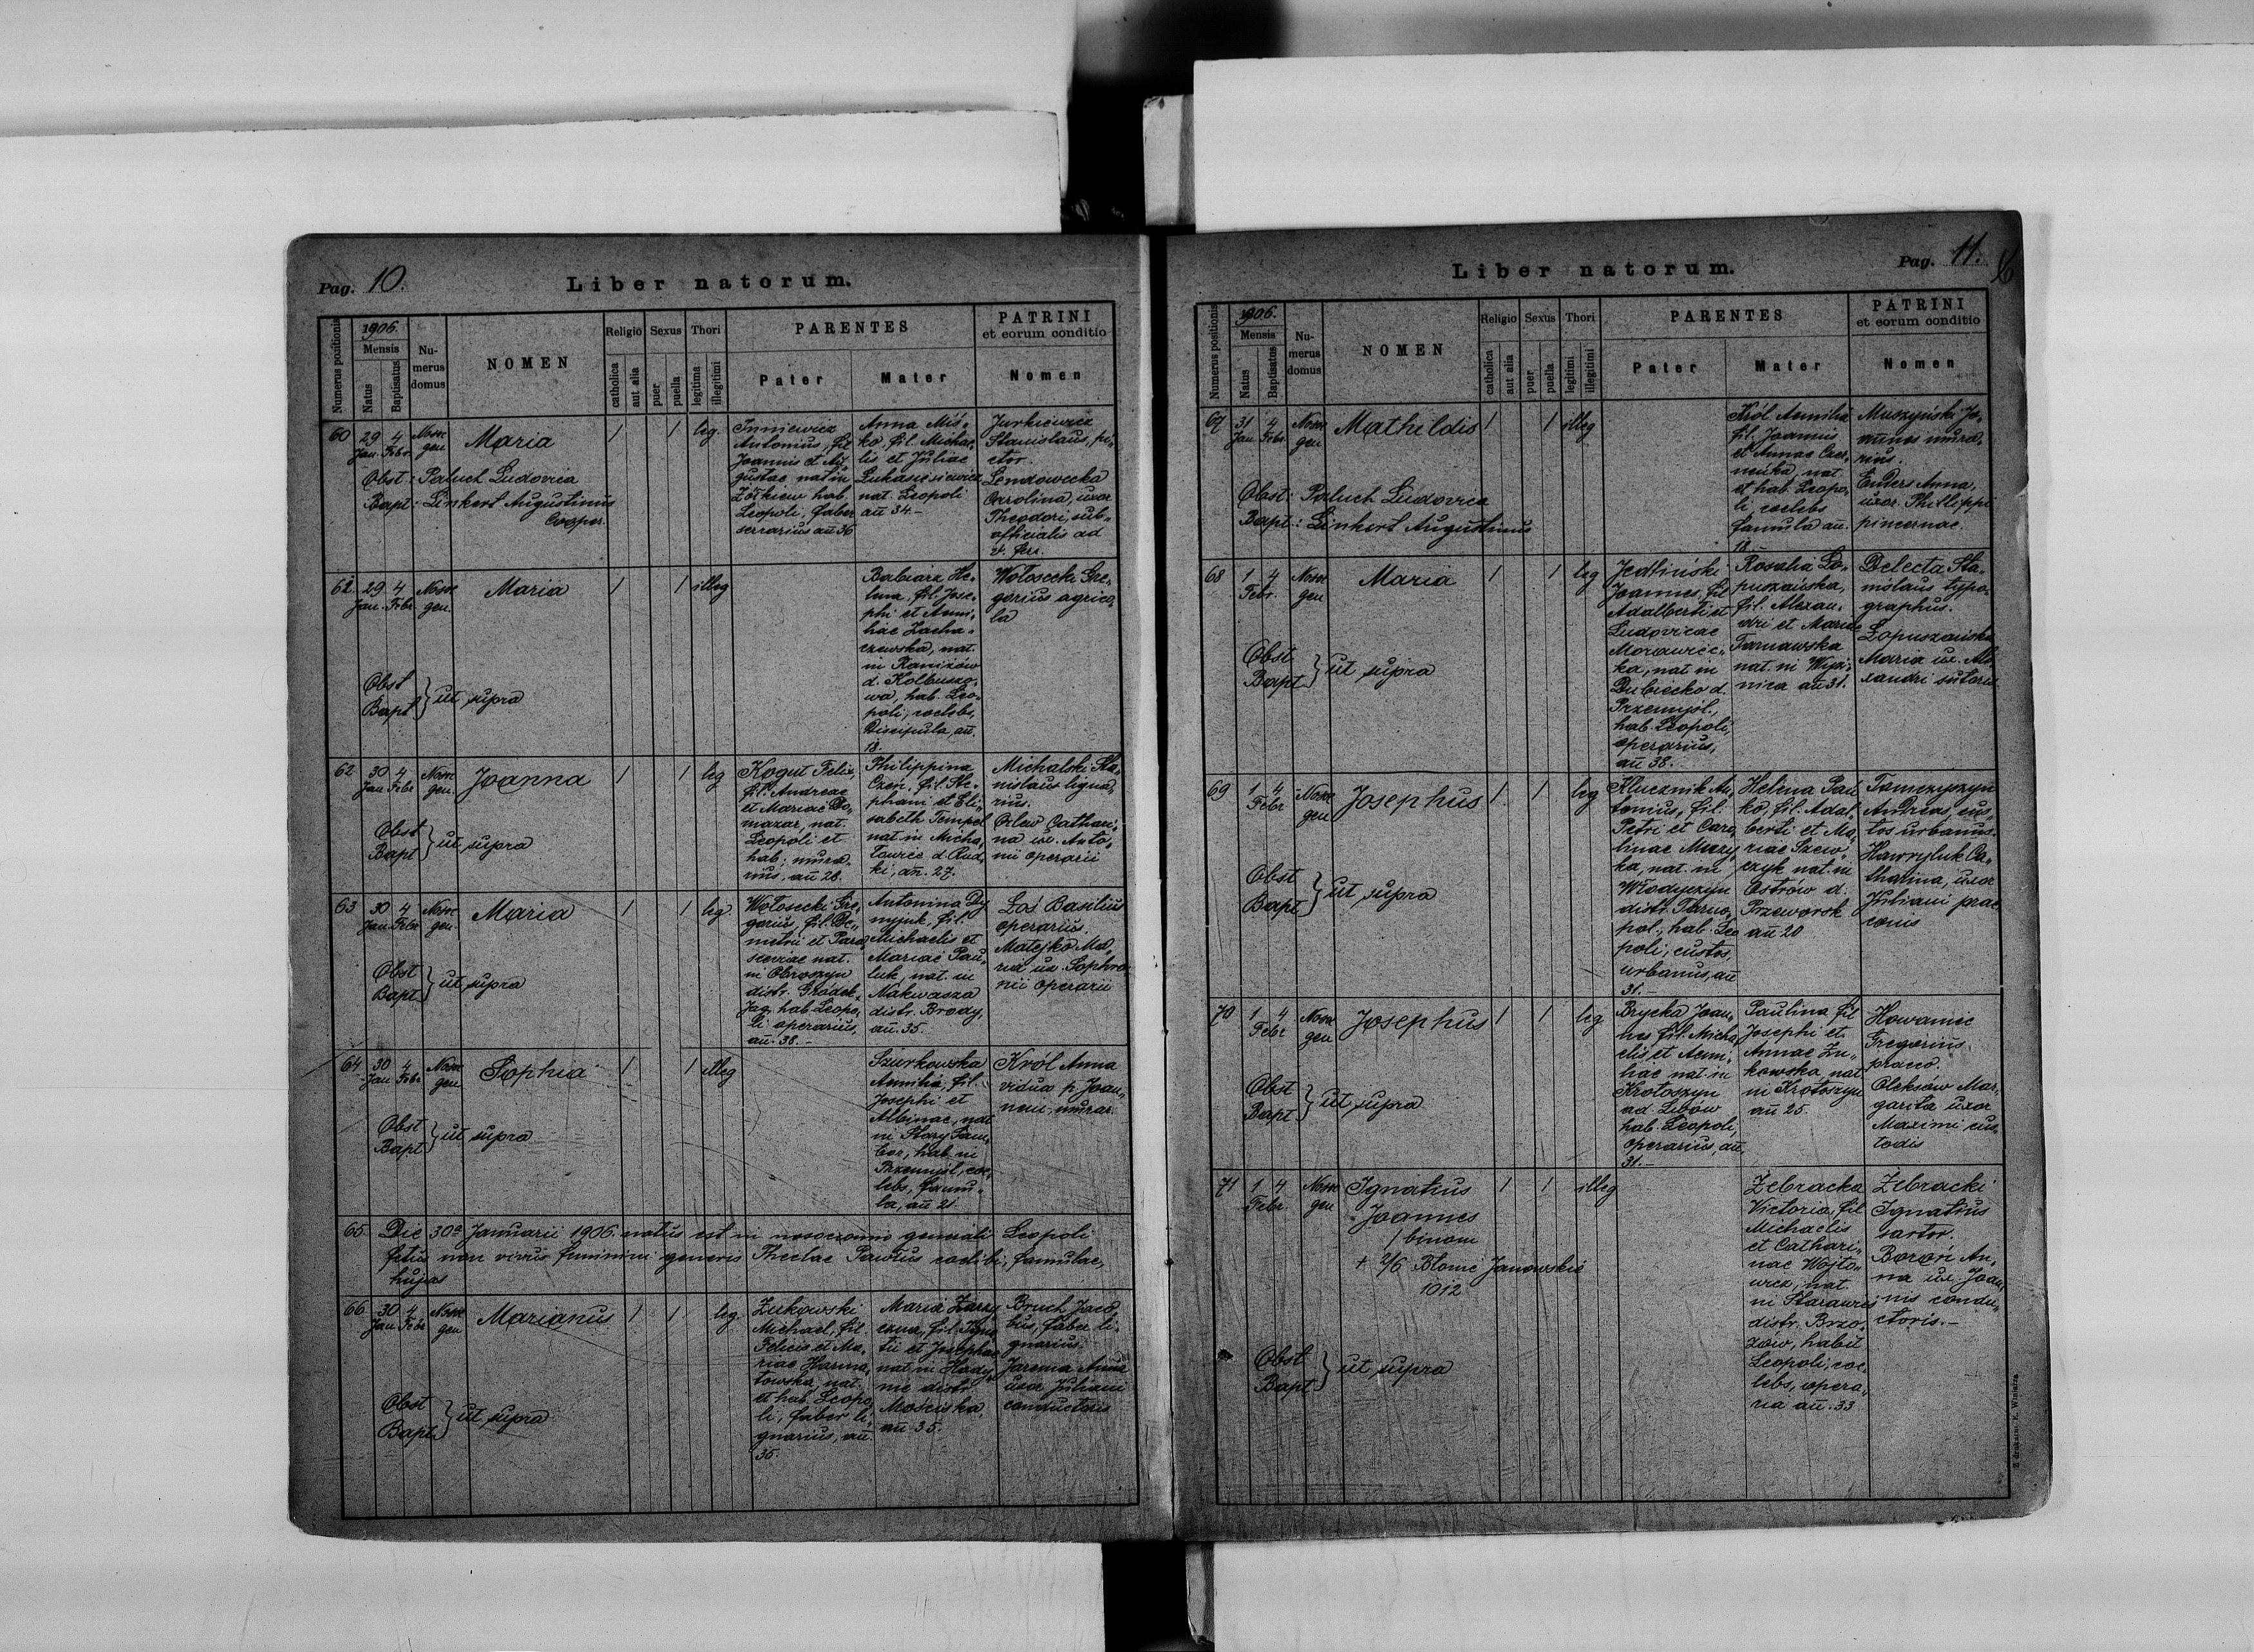 Pag. 10.
Liber natorum.
Numerus positionis
1906.
Mensis
Natus
Baptisatus
Numerus domus
NOMEN
Religio
catholica
aut alia
Sexus
puer
puella
Thori
legitima
illegitimi
PARENTES
Pater
Mater
PATRINI
et eorum conditio
Nomen
60
29 Jan.
4 Febr.
Nosoc
gen
Maria
1
1
leg.
Antonius, fil
Joannis et Au
gustae nat in
Żółkiew hab.
Leopoli, faber
serrarius añ 36
Anna Miś
ko, fil. Michae
lis et Juliae
Lukasiewicz
nat. Leopoli
añ 34.-
Jurkiewicz
Stanislaus, pi
ctor.
Lendowecka
Carolina, uxor
Theodori, sub
officialis ad
Obst: Paluch Ludovica
Bapt: Linkert Augustinus
Cooper.
61
29 Jan.
4 Febr
Nosoc
gen.
Maria
1
1
illeg
Babiarz He
lena, fil. Jose
phi et Aemi
liae Zacha
czewska, nat.
in Raniżów
d. Kolbuszo
wa, hab. Leo
poli, coelebs,
Discipula, añ.
18.
Wołosecki Gre
gorius agrico
la
Obst
Bapt } ut supra
62
30 Jan
4 Febr
Nosoc
gen.
Joanna
1
1
leg
Kogut Felix,
fil. Andreae
et Mariae Do
mazar, nat.
Leopoli et
hab; mura
rius, añ 28.
Philippina
Czeń, fil. Ste
phani et Eli
sabeth Tempel
nat in Micha
łowice d. Rud
ki, añ. 27.
Michalski Sta
nislaus ligna
rius.
Orlew Cathari
na ux. Anto
nii operarii
Obst
Bapt } ut supra
63
30 Jan
4 Febr
Nosoc
gen.
Maria
1
1
leg.
Wołosecki Gre
gorius, fil. De
metrii et Para
sceviae nat.
in Obroszyn
distr. Gródek
Jag. hab. Leopo
li operarius
añ. 38.-
Antonina Dy
nyjuk, fil.
Michaelis et
Mariae Pau
luk, nat. in
Nakwasza
distr. Brody,
añ. 35.
Łoś Basilius
operarius.
Matejko Ma
ria ux. Sophro
nii operarii
Obst
Bapt } ut supra
64
30 Jan
4 Febr
Nosoc
gen
Sophia
1
1
illeg
Szurkowska
Aemilia, fil.
Josephi et
Albinae, nat
in Stary Sam
bor, hab. in
Przemyśl, coe
lebs, famu
la, añ 21.
Król Anna
vidua p. Joan
nem, murar.
Obst
Bapt } ut supra
65. Die 30a Januarii 1906. natus est in nosocomio geniali Leopoli
fetus non vivus feminini generis Theclae Pawlus coelibi, famulae,
hujas
66
30 Jan
4 Febr
Nosoc
gen
Marianus
1
1
leg.
Żukowski
Michael, fil.
Felicis et Ma
riae Harma
towska, nat.
et hab. Leopo
li, faber li
gnarius, añ.
35.
Maria Zarzy
czna, fil. Igna
tii et Josephae
nat in Hady
nie distr.
Mościska,
añ 35.
Bruch Jaco
bus, faber li
gnarius.
Jarema Anna
uxor Juliani
conductoris
Obst
Bapt } ut supra
Pag. 11.
Liber natorum.
Numerus positionis
1906.
Mensis
Natus
Baptisatus
Numerus domus
NOMEN
Religio
catholica
aut alia
Sexus
puer
puella
Thori
legitimi
illegitimi
PARENTES
Pater
Mater
PATRINI
et eorum conditio
Nomen
67
31 Jan
4 Febr.
Nosoc
gen
Mathildis
1
1
illeg
Król Aemilia
fil. Joannis
et Annae Czer
necka, nat.
et hab. Leopo
li, coelebs
famula añ.
18.-
Muszyński Jo
annes mura
rius.
Emers Anna,
uxor Philippi
pincernae.
Obst: Paluch Ludovica
Bapt: Linkert Augustinus
68
1 Febr.
4
Nosoc
gen
Maria
1
1
leg
Jedliński
Joannes, fil
Adalberti et
Ludovicae
Morawiec
ka, nat in
Dubiecko d.
Przemyśl,
hab. Leopoli,
operarius,
añ 38.
Rosalia Ło
puszańska,
fil. Alexan
dri et Mariae
Tarnawska
nat. in Wiż
nica añ 31.
Delecta Sta
nislaus typo
graphus.
Łopuszańska
Maria ux. Ale
xandri sutoris
Obst
Bapt } ut supra
69
1 Febr
4
Nosoc
gen
Josephus
1
1
leg
Klucznik An
tonius, fil.
Petri et Caro
linae Muzy
ka, nat. in
Włodyczyn
distr. Tarno
pol, hab. Leo
poli, custos
urbanus, añ
31.-
Helena Pau
ko, fil. Adal
berti et Ma
riae Szew
czyk nat. in
Ostrów d.
Przeworsk
añ 20
Tomczyszyn
Andreas, cus
tos urbanus.
Hawryluk Ca
tharina, uxor
Juliani prae
conis
Obst
Bapt } ut supra
70
1 Febr
4
Nosoc
gen
Josephus
1
1
leg
Brycka Joan
nes fil. Micha
elis et Aemi
liae nat in
Krotoszyn
ad Lwów
hab. Leopoli,
operarius, añ.
31.-
Paulina fil
Josephi et
Annae Żu
kowska, nat
in Krotoszyn
añ 25.
Howaniec
Gregorius
praeco.
Oleksów Mar
garita uxor
Maximi cus
todis
Obst
Bapt } ut supra
71
1 Febr.
4
Nosoc
gen
Ignatius
Joannes
/ binom
+ 2/6 Błonie Janowskie
1012
1
1
illeg
Żebracka
Victoria, fil
Michaelis
et Cathari
nae Wojto
wicz, nat.
in Starawieś
distr. Brzo
zów, habit
Leopoli, coe
lebs, opera
ria añ. 33
Żebracki
Ignatius
sartor.
Boroń An
na ux. Joan
nis condu
ctoris.-
Obst
Bapt } ut supra
Z drukarni E. Winiarza